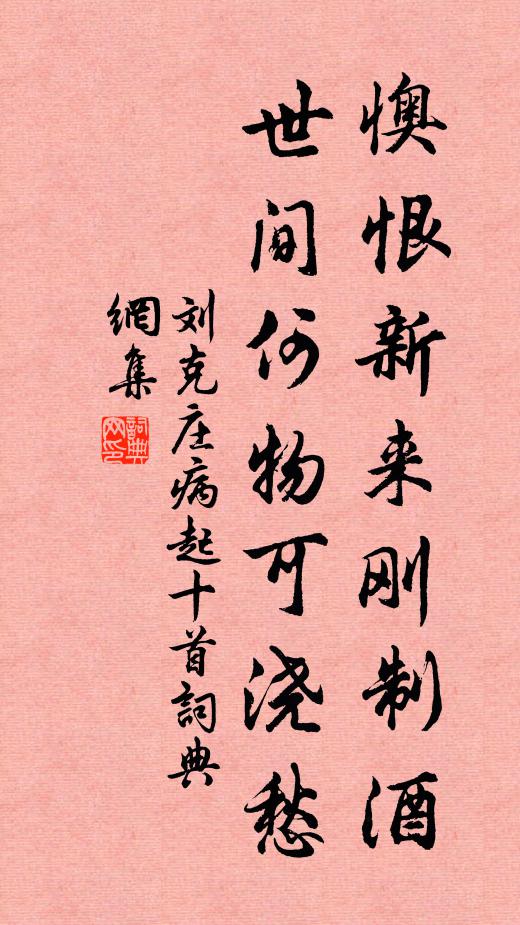 懊恨新来刚制酒
世间何物可浇愁
刘克庄病起十首詞典
網集
詞典
网印